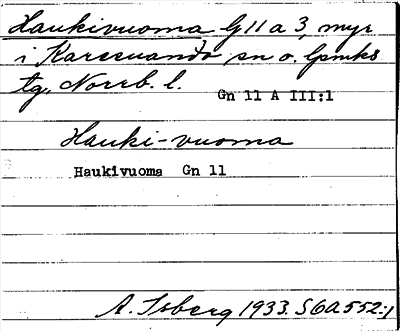 Haukivuoma G 11 a 3, myr
i Karesuando sn o. lpmks
tg, Norrb. l.
Gn 11 A III:1
Hauki-vuoma
Haukivuoma Gn 11
A. Isberg 1933. SOA 552:1